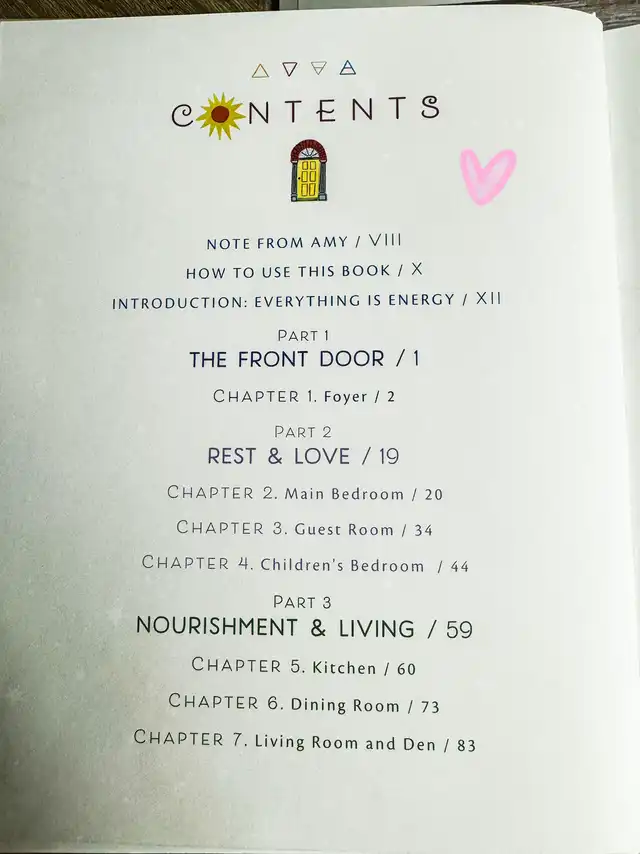 CONTENTS
NOTE FROM AMY / VIII
HOW TO USE THIS BOOK / X
INTRODUCTION: EVERYTHING IS ENERGY / XII
PART 1
THE FRONT DOOR / 1
CHAPTER 1. Foyer / 2
PART 2
REST & LOVE / 19
CHAPTER 2. Main Bedroom / 20
CHAPTER 3. Guest Room / 34
CHAPTER 4. Children's Bedroom / 44
PART 3
NOURISHMENT & LIVING / 59
CHAPTER 5. Kitchen / 60
CHAPTER 6. Dining Room / 73
CHAPTER 7. Living Room and Den / 83